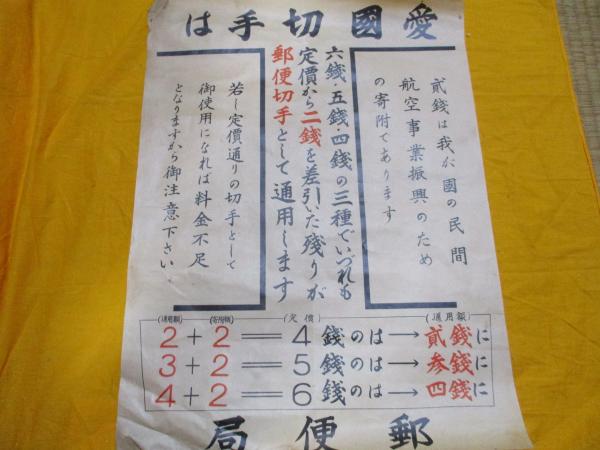 愛國切手は
貳錢は我が國の民間
航空事業振興のため
の寄附であります
六錢・五錢・四錢の三種でいづれも
定價から二錢を差引いた殘りが
郵便切手として通用します
若し定價通りの切手として
御使用になれば料金不足
となりますから御注意下さい
(通用額) (寄附額) (定價) (通用額)
2+2=4錢のは→貳錢に
3+2=5錢のは→参錢に
4+2=6錢のは→四錢に
郵便局